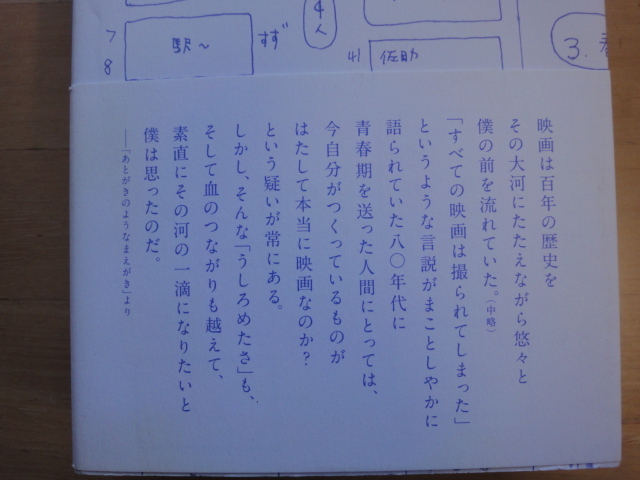 7
8
駅～
すず
4人
41
佐助
3.
映画は百年の歴史を
その大河にたたえながら悠々と
僕の前を流れていた。(中略)
「すべての映画は撮られてしまった」
というような言説がまことしやかに
語られていた八〇年代に
青春期を送った人間にとっては、
今自分がつくっているものが
はたして本当に映画なのか？
という疑いが常にある。
しかし、そんな「うしろめたさ」も、
そして血のつながりも越えて、
素直にその河の一滴になりたいと
僕は思ったのだ。
──「あとがきのようなまえがき」より